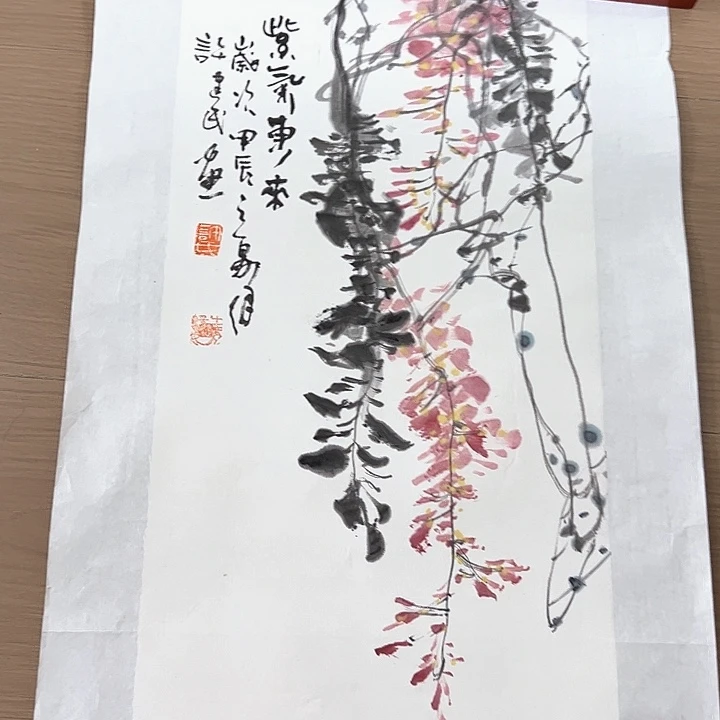 紫氣東來
歲次甲辰之夏月
許建民畫